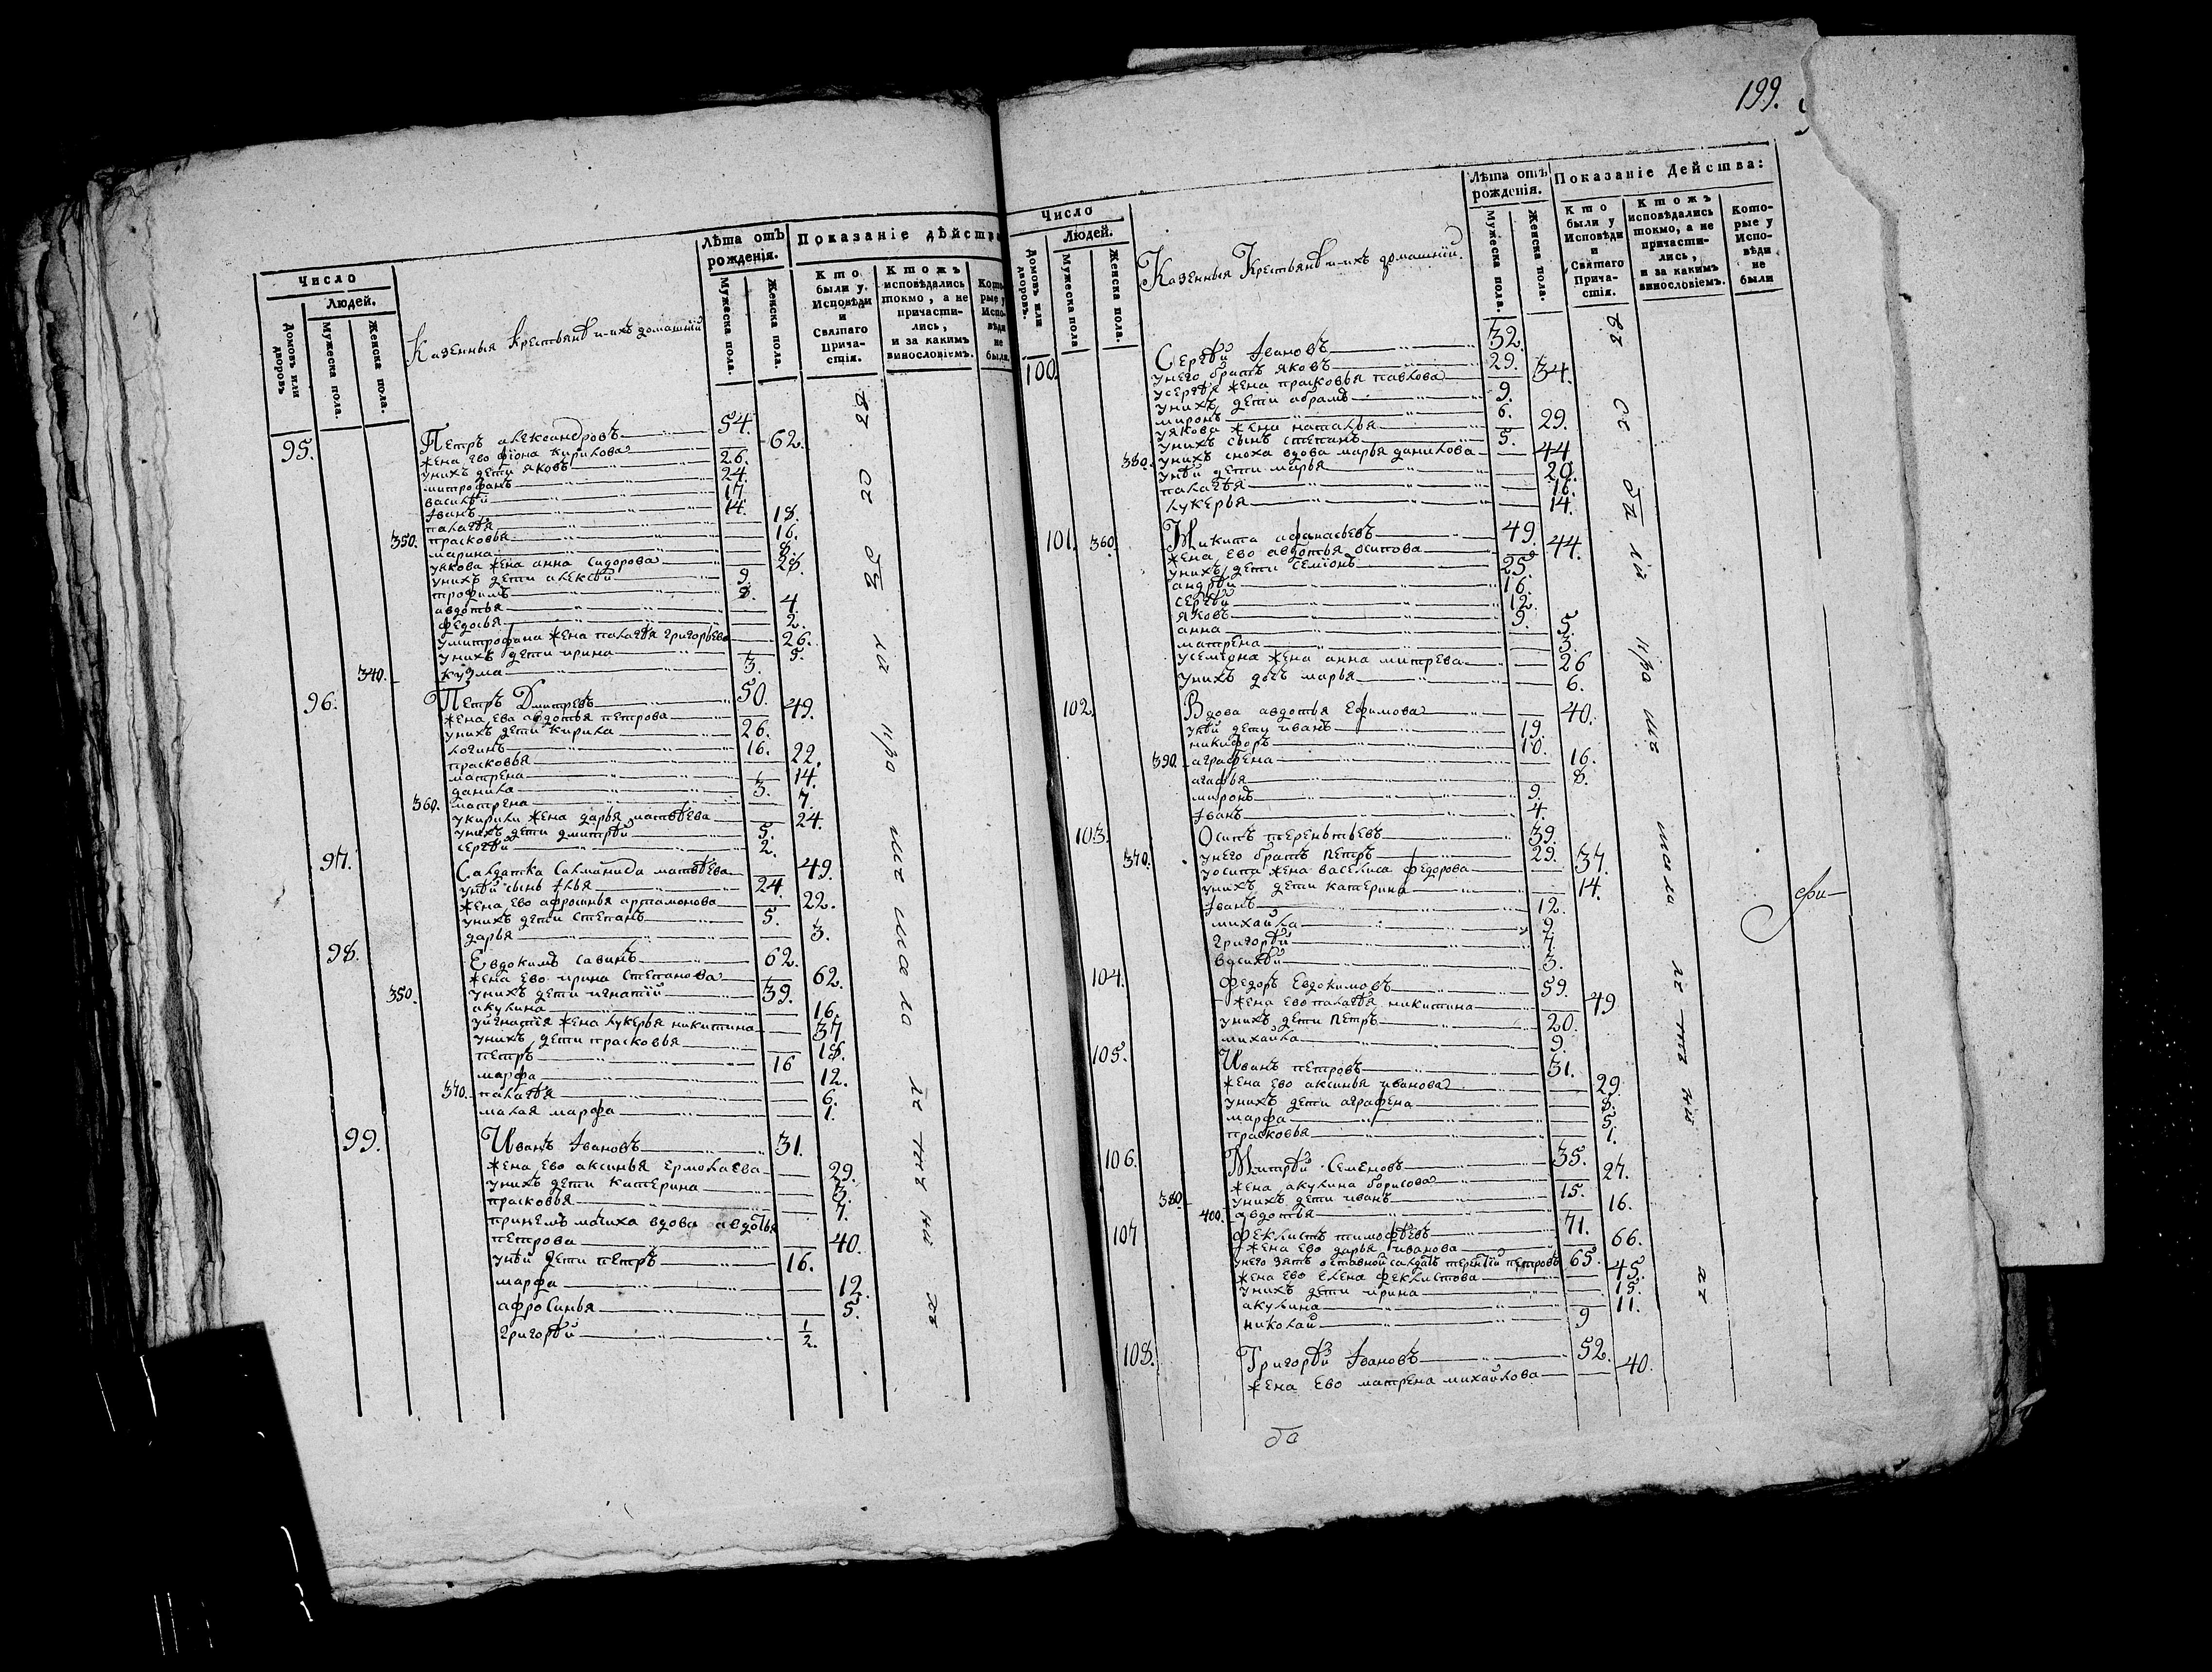 Число
Людей.
Домовъ или дворовъ.
Мужеска пола.
Женска пола.
Казенныя Крестьянѣ и ихъ домашнїй
Лѣта отъ рожденія.
Мужеска пола.
Женска пола.
Показаніе дѣйства
Кто были у Исповѣди и Святаго Прича-стія.
Ктожъ исповѣдались токмо, а не причасти-лись, и за какимъ винословіемъ.
Кото-рые у Испо-вѣди не были
95. Петръ александровъ 54.
жена ево фїона кирилова 62.
унихъ дети яковъ 26.
митрофанъ 24.
василѣй 17.
Iванъ 14.
палагѣя 18.
350. прасковья 16.
марина 8.
уякова жена анна сидорова 28.
унихъ дети алексѣй 9.
трофимъ 8.
авдотья 4.
федосья 2.
умитрофана жена палагѣя григорьева 26.
унихъ дети ирина 5.
340. кузма 3.
96. Петръ Дмитревъ 50.
жена ева авдотья петрова 49.
унихъ дети кирила 26.
логинъ 16.
прасковья 22.
матрена 14.
данила 3.
360. матрена 7.
укирилы жена дарья матвѣева 24.
унихъ дети дмитрѣй 5.
сергѣй 2.
97. Салдатка Салманида матвѣева 49.
унѣй сынъ Iлья 24.
жена ево афросинья артамонова 22.
унихъ дети степанъ 5.
дарья 3.
98. Евдокимъ савинъ 62.
жена ево ирина степанова 62.
350. унихъ дети игнатїй 39.
акулина 16.
уйгнатїя жена лукерья никитина 37
унихъ дети прасковья 18.
петръ 16
марфа 12.
370. палагѣя 6.
малая марфа 1.
99. Иванъ Iвановъ 31.
жена ево аксинья ермолаева 29.
унихъ дети катерина 3.
прасковья 7.
принемъ мачиха вдова авдотья
петрова 40.
унѣй дети петръ 16.
марфа 12.
афросинья 5.
григорѣй 1/2.
199.
Число
Людей.
Домовъ или дворовъ.
Мужеска пола
Женска пола.
Казенныя Крестьянѣ и ихъ домашнїй.
Лѣта отъ рожденія.
Мужеска пола.
Женска пола.
Показаніе Дѣйства:
Кто были у Исповѣди и Святаго Прича-стія.
Ктожъ исповѣдались токмо, а не причасти-лись, и за какимъ винословіемъ.
Кото-рые у Испо-вѣди не были
100. Сергѣй Iвановъ 32.
унего братъ яковъ 29.
усергѣя жена прасковья павлова 34.
унихъ дети абрамъ 9.
миронъ 6.
уякова жена наталья 29.
унихъ сынъ степанъ 5.
380. унихъ сноха вдова марья данилова 44
унѣй дети марья 20.
палагѣя 16.
лукерья 14.
101. 360. Микита афанасьевъ 49.
жена ево авдотья осипова 44.
унихъ дети семїонъ 25.
андрѣй 16.
сергѣй 12.
яковъ 9.
анна 5.
матрена 3.
усемїона жена анна митрева 26
унихъ дочь марья 6.
102. Вдова авдотья Ефимова 40.
унѣй дети иванъ 19.
никифоръ 10.
390. аграфена 16.
агафья 8.
миронъ 9.
Iванъ 4.
103. Осипъ терентьевъ 39.
370. унего братъ петръ 29.
уосипа жена василиса федорова 37.
унихъ дети катерина 14.
Iванъ 12.
михайла 9.
григорѣй 7.
василѣй 3.
104. Федоръ Евдокимовъ 59.
жена ево палагѣя никитина 49
унихъ дети петръ 20.
михайла 9.
105. Иванъ петровъ 31.
жена ево аксинья иванова 29.
унихъ дети аграфена 8.
марфа 5.
прасковья 1.
106. Митрѣй Семеновъ 35.
жена акулина борисова 27.
380. унихъ дети иванъ 15.
400. авдотья 16.
107 Феклистъ тимофѣевъ 71.
жена ево дарья иванова 66.
унего зять оставной салдатъ терентїй петровъ 65.
жена ево елена феклистова 45.
унихъ дети ирина 15.
акулина 11.
николай 9
108. Григорѣй Iвановъ 52.
жена ево матрена михайлова 40.